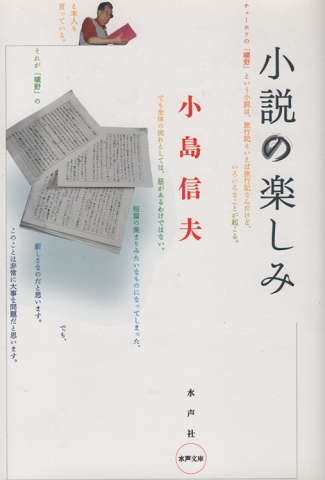 小説の楽しみ
小島信夫
チェーホフの「曠野」という小説は、旅行記といえば旅行記なんだけど、
いろいろなことが起こる。
でも全体の流れとしては、筋があるわけではない。
短篇の集まりみたいなものになってしまった、
と本人も
言っている。
それが「曠野」の
新しさなのだと思います。
でも、
このことは非常に大事な問題だと思います。
水声社
水声文庫